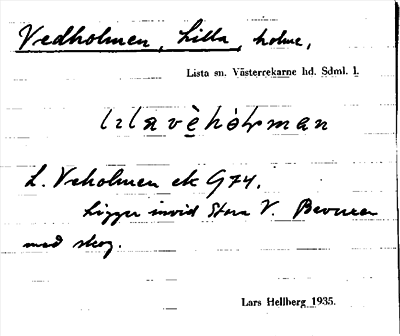 Vedholmen, Lilla, holme,
Lista sn. Västerrekarne hd. Sdml. l.
L. Veholmen ek G74.
Ligger invid Stora V. Bevuxen
med skog.
Lars Hellberg 1935.